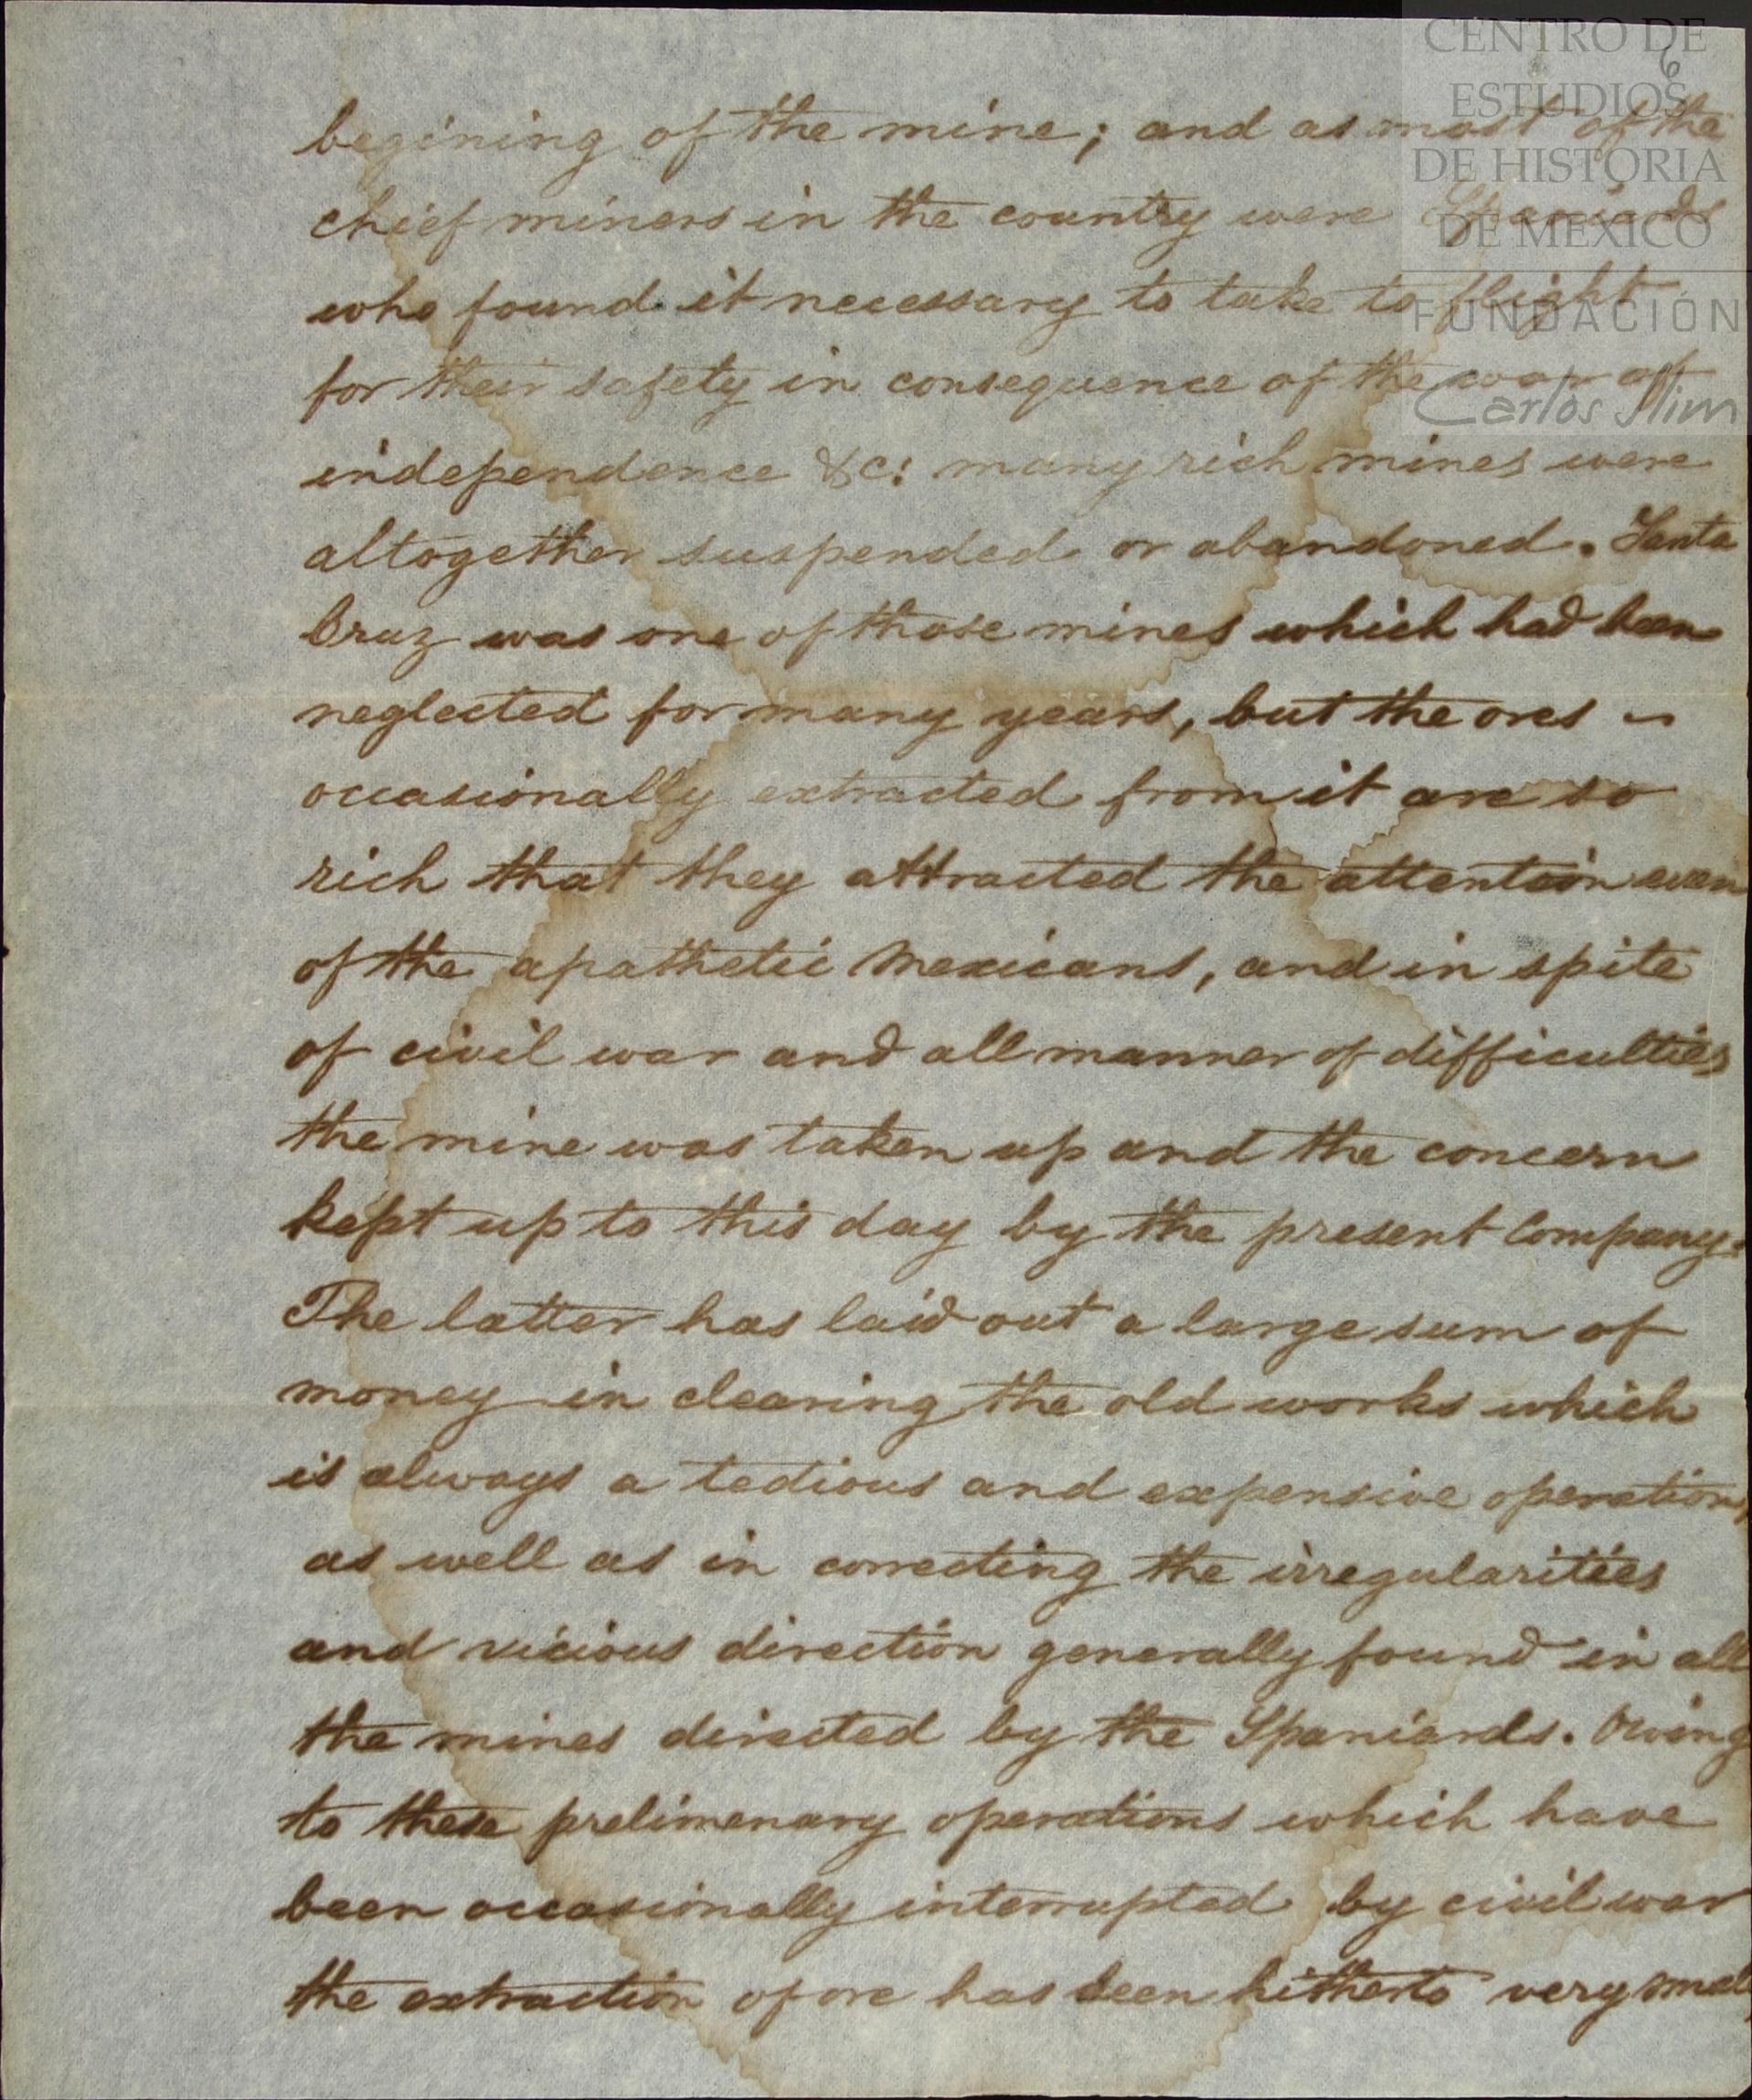 CENTRO DE
ESTUDIOS
DE HISTORIA
DE MEXICO
FUNDACIÓN
Carlos Slim
6
begining of the mine; and as most of the
chief miners in the country were Spaniards
who found it necessary to take to flight
for their safety in consequence of the war of
independence &c: many rich mines were
altogether suspended or abandoned. Santa
Cruz was one of those mines which had been
neglected for many years, but the ores ~
occasionally extracted from it are so
rich that they attracted the attention even
of the apathetic Mexicans, and in spite
of civil war and all manner of difficulties
the mine was taken up and the concern
kept up to this day by the present Company.
The latter has laid out a large sum of
money in clearing the old works which
is always a tedious and expensive operation,
as well as in correcting the irregularities
and vicious direction generally found in all
the mines directed by the Spaniards. Owing
to these prelimenary operations which have
been occasionally interrupted by civil war
the extraction of ore has been hitherto very small,